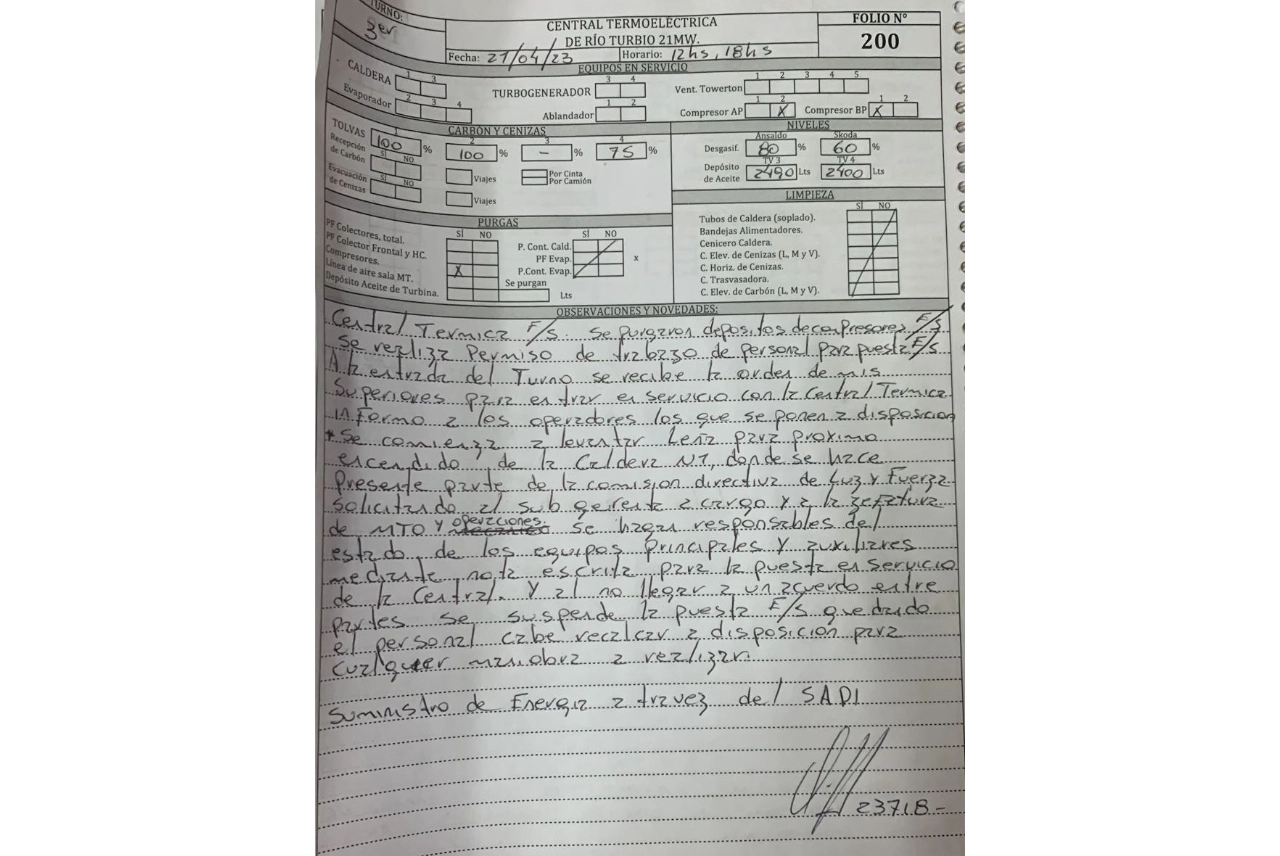 TURNO:
3er
CENTRAL TERMOELÉCTRICA
DE RÍO TURBIO 21MW.
FOLIO Nº
200
Fecha: 27/04/23 Horario: 12hs, 18hs
EQUIPOS EN SERVICIO
CALDERA 1 3
TURBOGENERADOR 3 4
Vent. Towerton 1 2 3 4 5
Evaporador 2 3 4
Ablandador 1 2
Compresor AP 1 2 X
Compresor BP 1 2 X
CARBÓN Y CENIZAS
TOLVAS 1 100 % 2 100 % 3 - % 4 75 %
Recepción de Carbón SÍ NO Viajes
Por Cinta
Por Camión
Evacuación de Cenizas SÍ NO Viajes
NIVELES
Ansaldo Skoda
Desgasif. 80 % 60 %
TV 3 TV 4
Depósito de Aceite 2490 Lts 2400 Lts
LIMPIEZA
SÍ NO
Tubos de Caldera (soplado).
Bandejas Alimentadores.
Cenicero Caldera.
C. Elev. de Cenizas (L, M y V).
C. Horiz. de Cenizas.
C. Trasvasadora.
C. Elev. de Carbón (L, M y V).
PURGAS
SÍ NO SÍ NO
PF Colectores, total.
PF Colector Frontal y HC.
Compresores. X
Línea de aire sala MT.
Depósito Aceite de Turbina.
P. Cont. Cald.
PF Evap. x
P.Cont. Evap.
Se purgan Lts
OBSERVACIONES Y NOVEDADES:
Central Termica F/s. Se purgaron depositos de compresores F/s
Se realiza Permiso de trabazo de personal para puesta E/s
A la entrada del Turno se recibe la orden de mis
Superiores para entrar en servicio con la Central Termica
informo a los operadores los que se ponen a disposicion
* Se comienza a levantar Leña para proximo
encendido, de la Caldera N1, donde se hace
Presente parte de la comision directiva de Luz y Fuerza
solicitando al sub gerente a cargo y a la zefatura
de MTO y operaciones se hagan responsables del
estado, de los equipos Principales y auxiliares
mediante nota escrita para la puesta en servicio
de la Central. Y al no llegar a un acuerdo entre
partes se suspende la puesta E/s quedando
el personal cabe recalcar a disposicion para
cualquier maniobra a realizar.
Suministro de Energia a travez del SADI
23718-